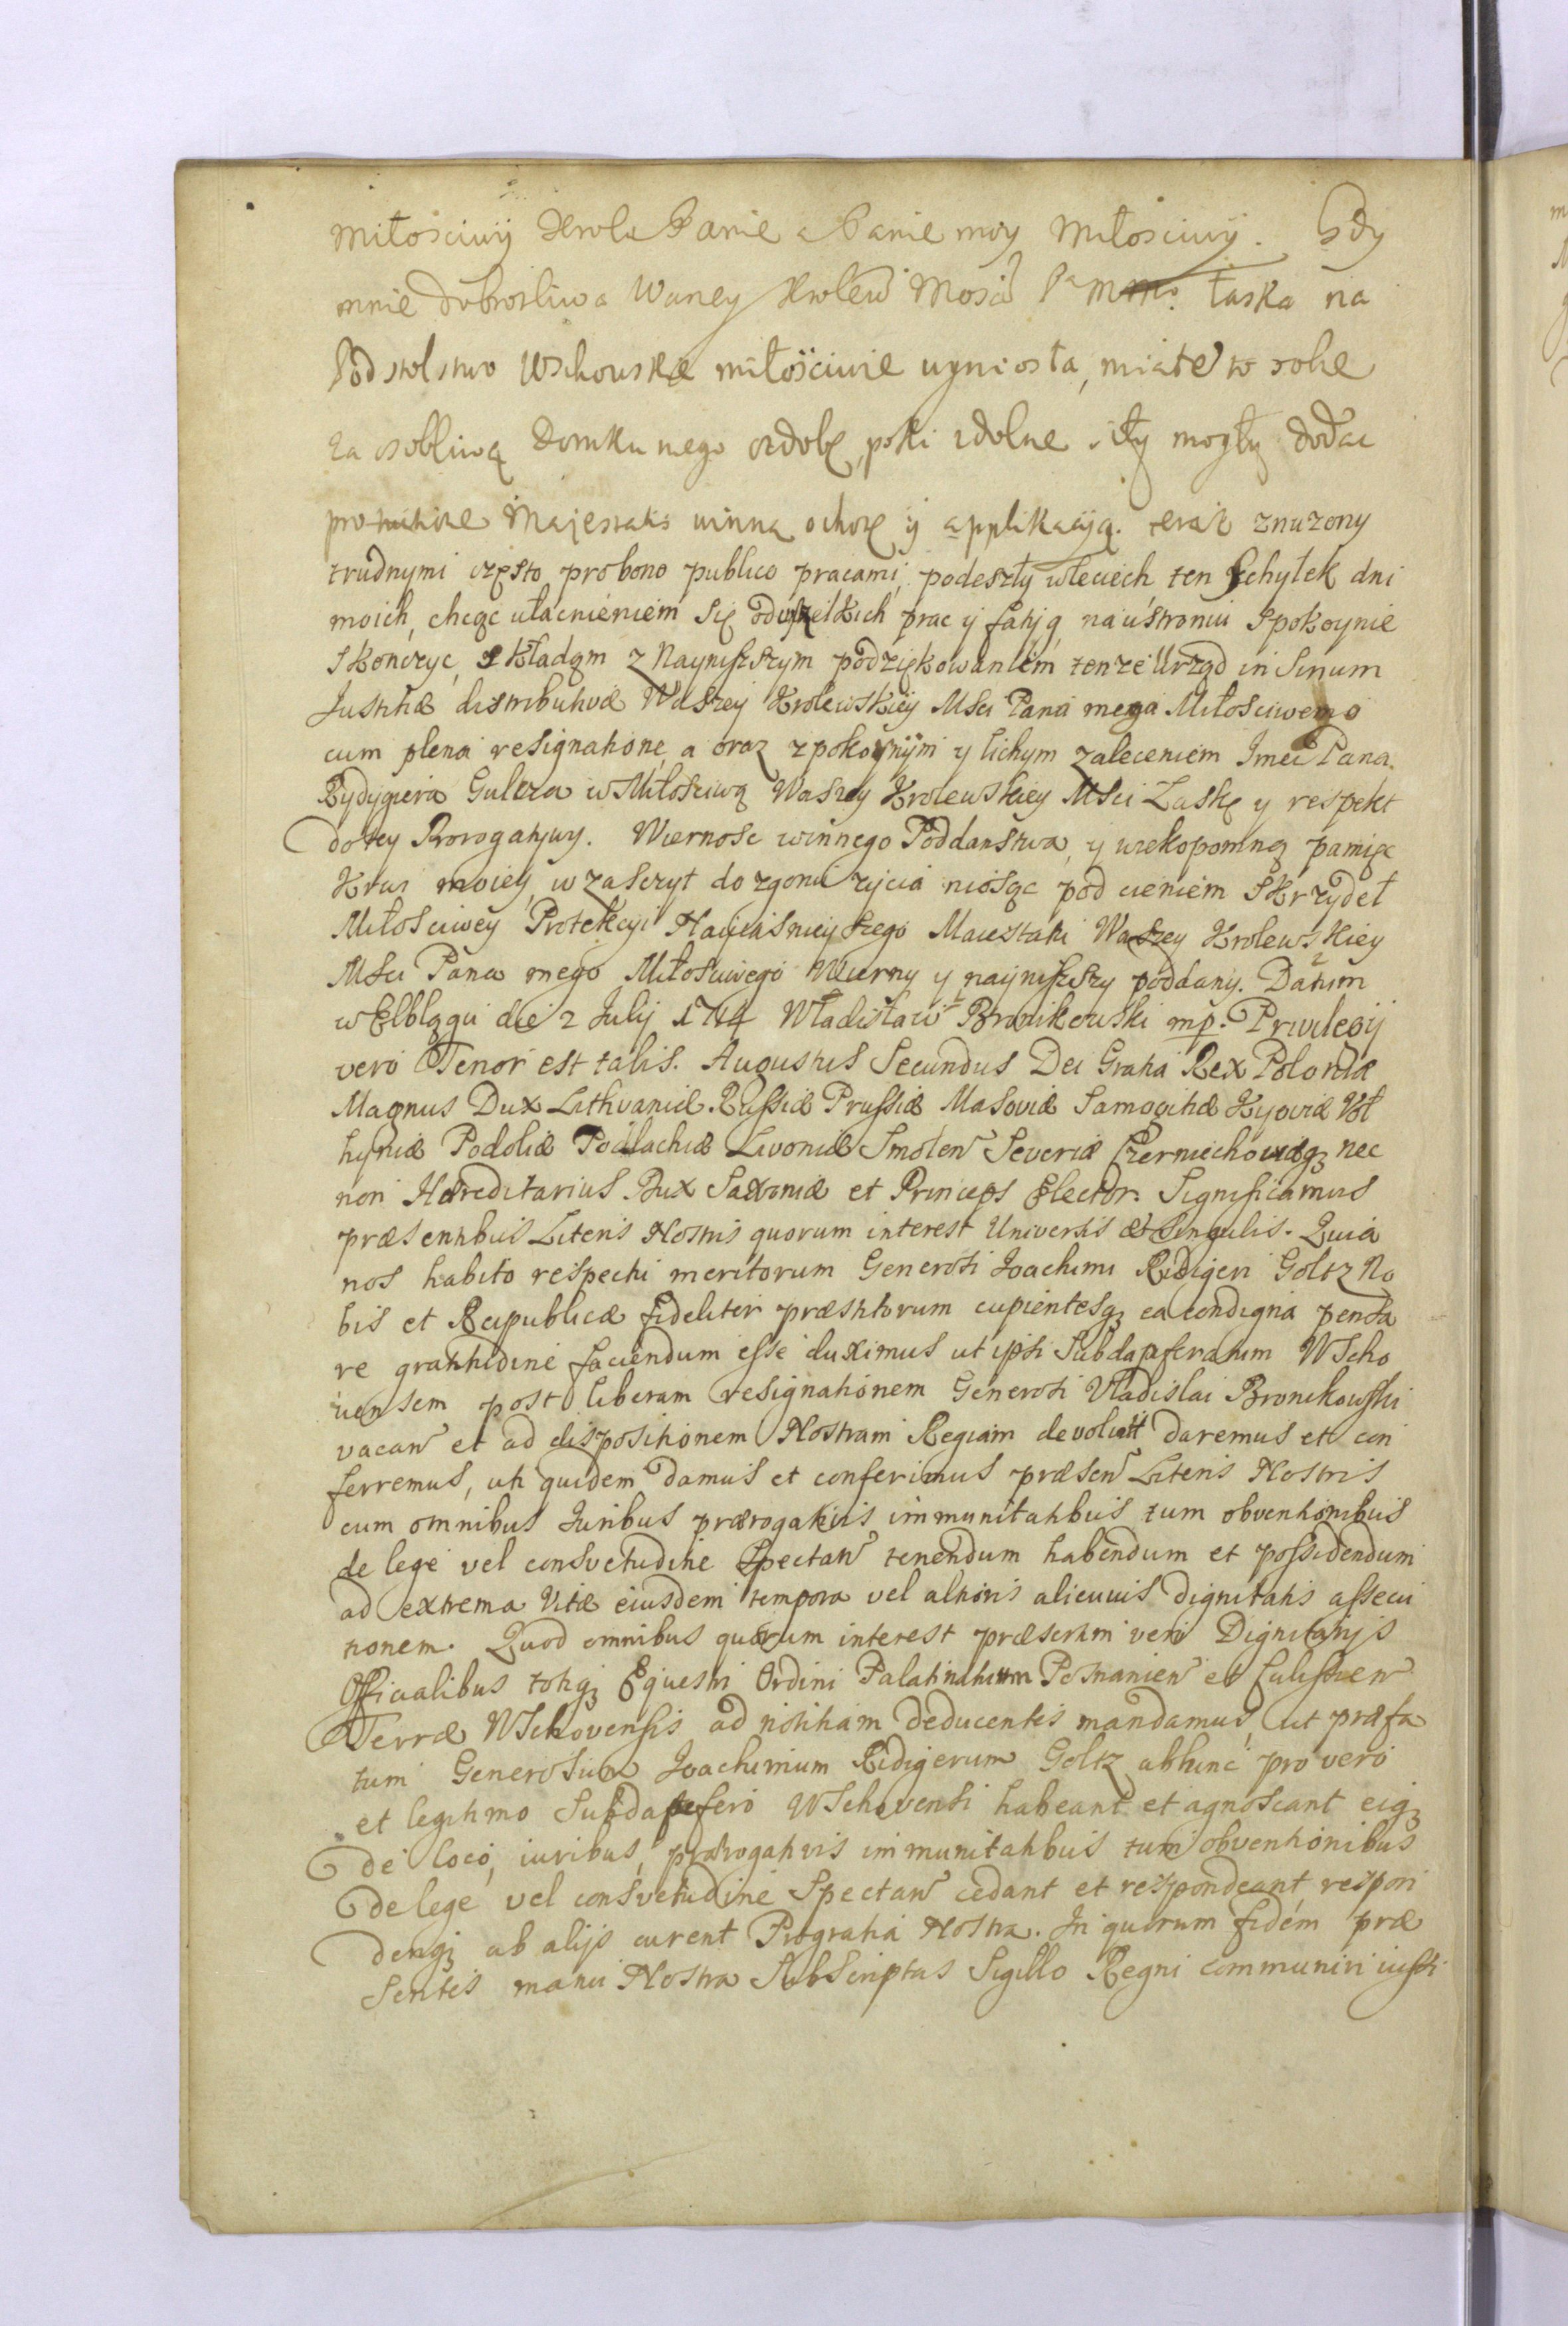 Miłosciwÿ Krolu Panie a Panie moy Miłosciwÿ. Gdy
mnie dobrotliwa Waszey Krolew Mosci Pa łaska na
Podstolstwo Wschouskie miłościwie wyniosła, miałe to sobe
za osobliwą Domku mego ozdobę, poki zdolne siły mogły dodac
pro Majestatis winną ochotę ÿ applikacyą. teraz znuzony
trudnymi często pro bono publico pracami, podeszły wleciech, ten schyłek dni
moich, chcąc ułacnieniem się odwszelkich prac y fatyg na ustroniu spokoynie
skonczyc, składam z Nayniszszym podziękowaniem tenze Urząd in Sinum
Justitiæ distributivæ Waszey Krolewskiey Msci Pana mego Miłosciwego
cum plena resignatione, a oraz z pokornÿm y lichym zaleceniem Jmci Pana
Rydygiera Gultza w Miłosciwą Waszey Krolewskiey Msci Łaskę y respekt
do tey Prorogatywy. Wiernosc winnego Poddanstwa, y wiekopomną pamięc
Krwi moiey, w zasczyt do zgonu zycia niosąc pod cieniem skrzydeł
Miłosciwey Protekcyi Nayiasnieyszego Maiestatu Waszey Krolewskiey
Msci Pana mego Miłosciwego Wierny y nayniszszy poddany. Datum
w Elblągu die 2 Julij 1714 Władisław Bronikowski mp. Privilegij
vero Tenor est talis. Augustus Secundus Dei Gratia Rex Poloniæ
Magnus Dux Lithvaniæ Russiæ Prussiæ Masoviæ Samogitiæ Kyoviæ Vol
hyniæ Podoliæ Podlachiæ Livoniæ Smolen Severiæ Czerniechoviæq3 nec
non Hæreditarius Dux Saxoniæ et Princeps Elector. Significamus
præsentibus Literis Nostris quorum interest Universis et Singulis. Quia
nos habito respectu meritorum Generosi Joachimi Ridigeri Goltz No
bis et Reipublicæ fideliter præstitorum cupientesq3 ea condigna pensa
re gratitudine faciendum esse duximus ut ipsi Subdapiferatum Wscho
vensem post liberam resignationem Generosi Vladislai Bronikowski
vacan et ad dispositionem Nostram Regiam devolut daremus et con
ferremus, uti quidem damus et conferimus præsen Literis Nostris
cum omnibus Juribus prærogativis immunitatibus tum obventionibus
de lege vel consvetudine Spectan tenendum habendum et possidendum
ad extrema Vitæ eiusdem tempora vel altioris alicuius dignitatis assecu
tionem. Quod omnibus quorum interest præsertim vero Dignitarijs
Officialibus totiq3 Equestri Ordini Palatinatuum Posnanien et Calissien
Terræ Wschovensis ad notitiam deducentes mandamus, ut præfa
tum Generosum Joachimum Ridigerum Goltz abhinc pro vero
et legitimo Subdapifero Wschovensi habeant et agnoscant eiq3
de loco, iuribus, prærogativis immunitatibus tum obventionibus
de lege vel consvetudine Spectan cedant et respondeant, respon
deriq3 ab alijs curent Pro gratia Nostra. In quorum fidem præ
sentes manu Nostra Subscriptas Sigillo Regni communiri iussi